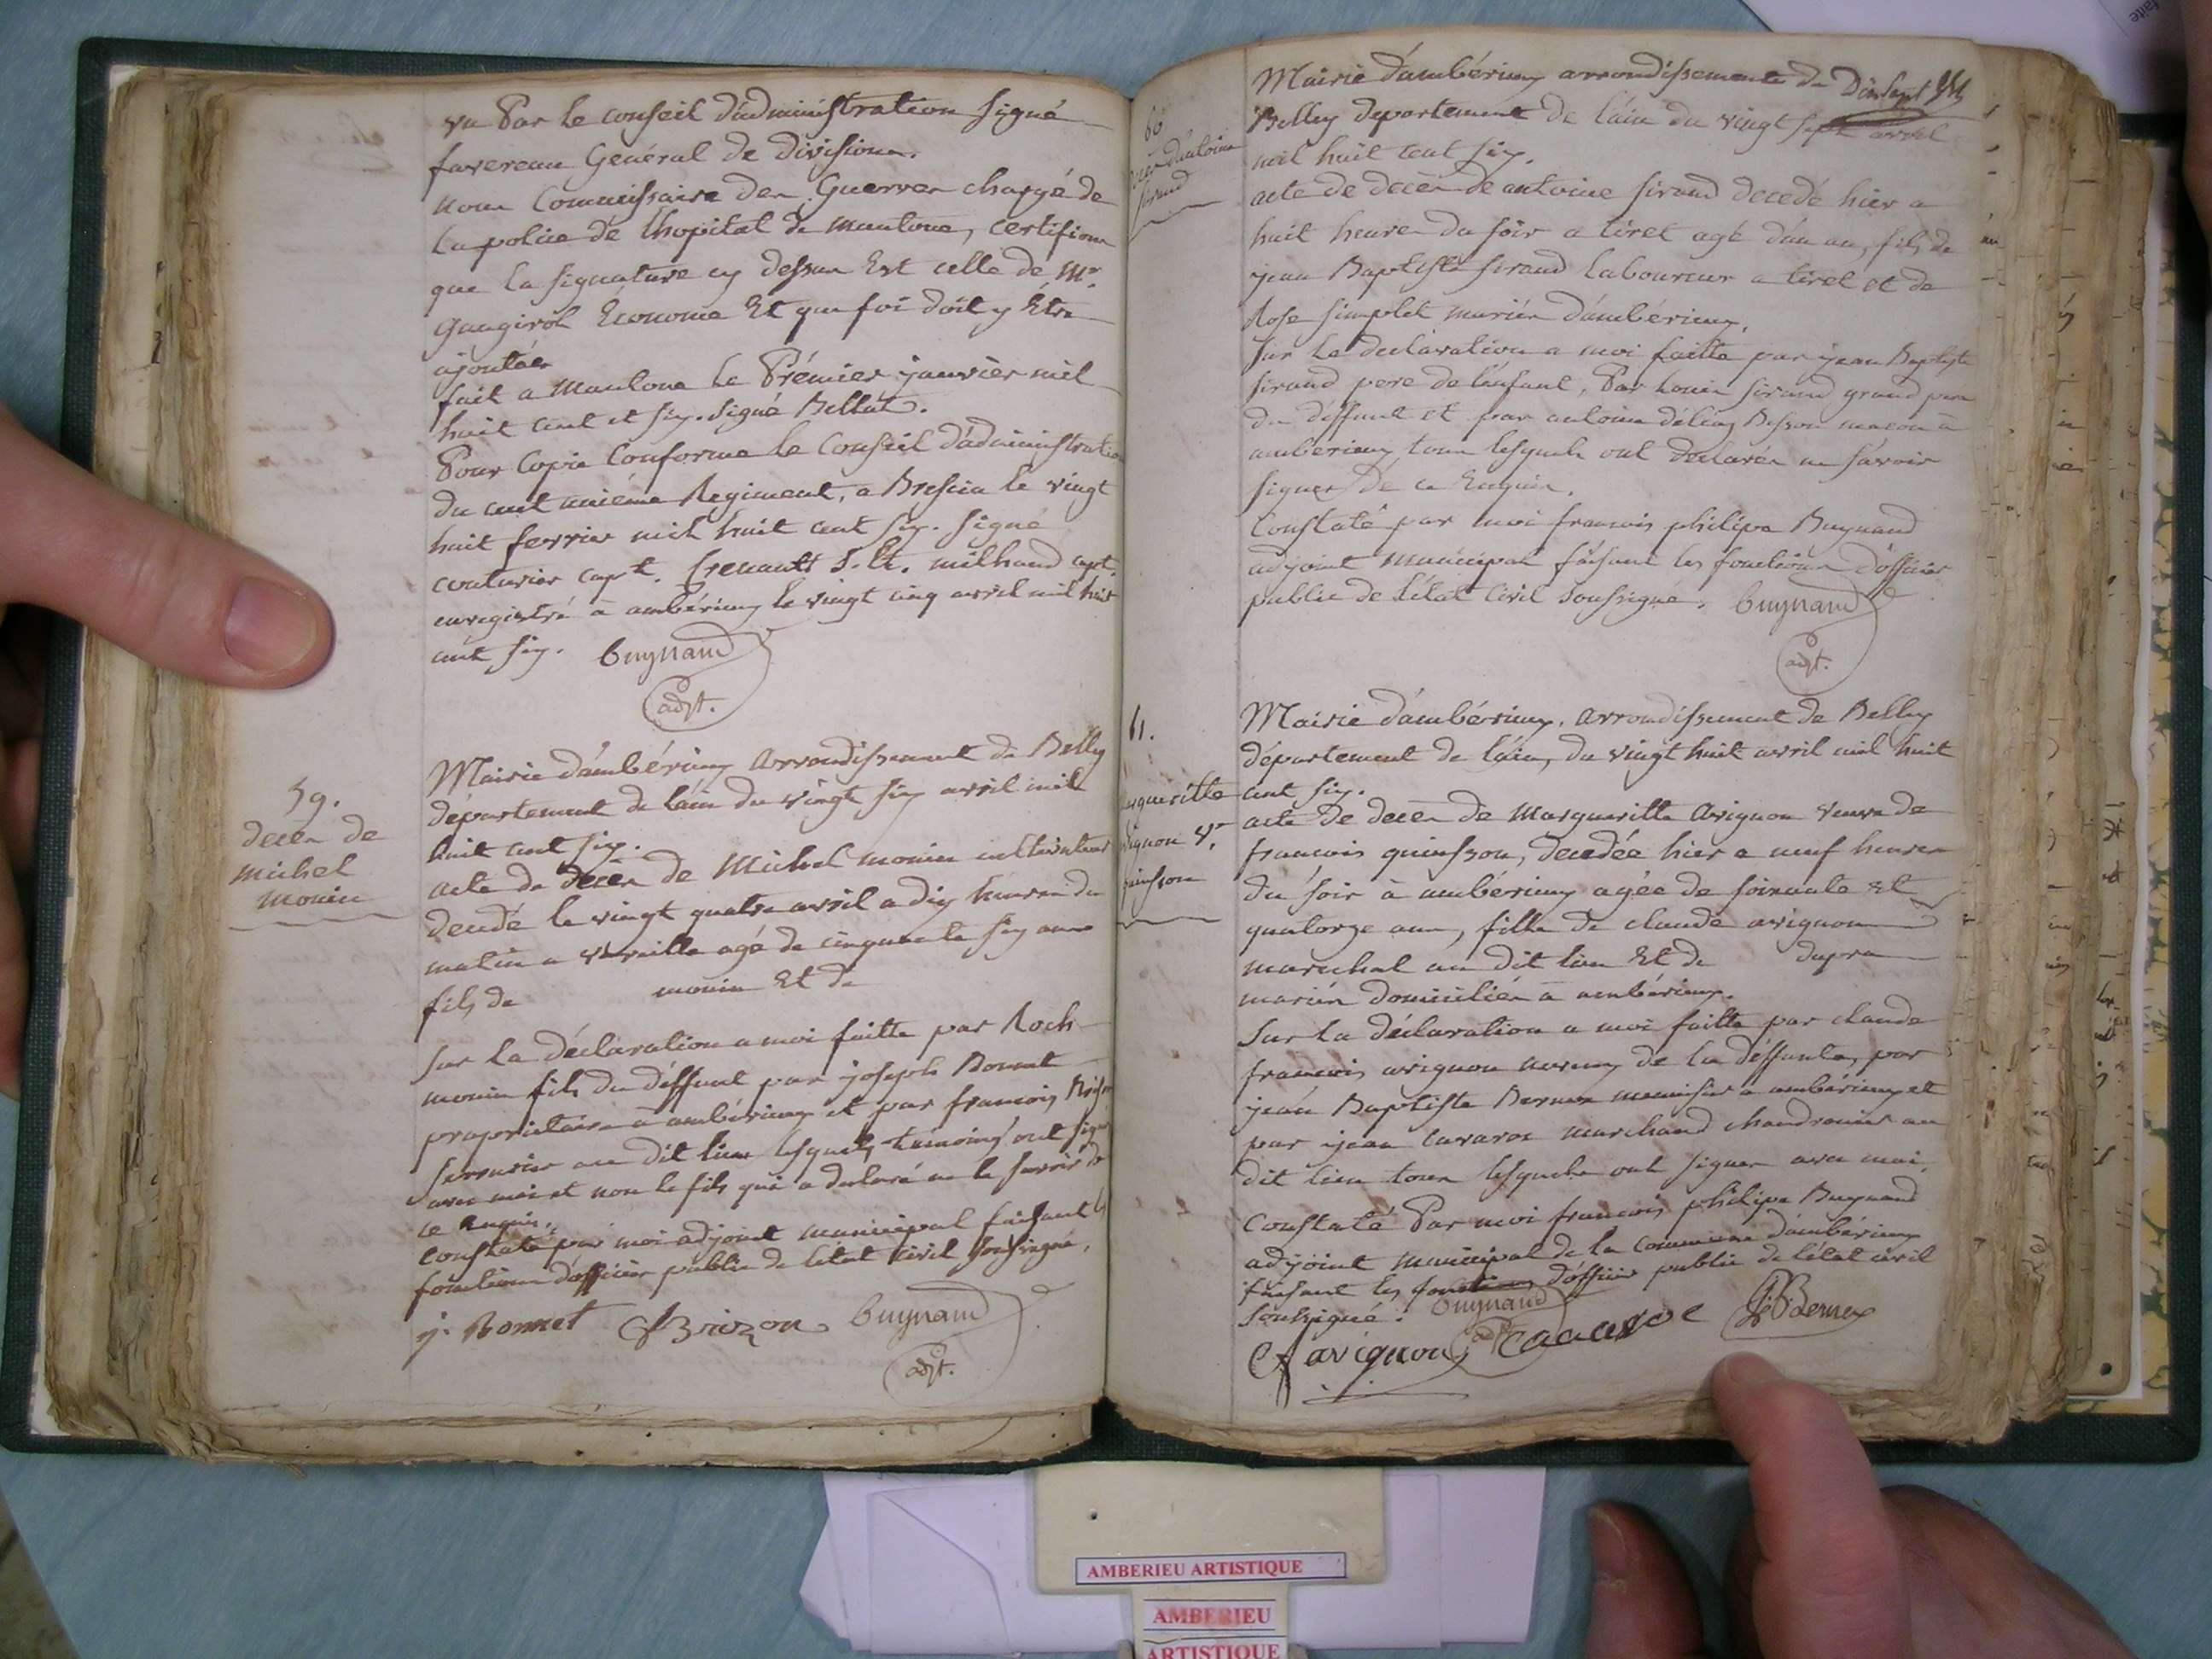 vu Par le conseil d'administration signé
favereau Général de Division.
nous Commissaire des Guerres chargé de
la police de l'hopital de mantoue, certifions
que la signature cy dessus Est celle de Mr.
Économe Et que foi doit y Etre
ajoutée
fait a Mantoue le Prémier janvier mil
huit cent et six. signé Bellat.
Pour Copie Conforme le Conseil d'administration
du cent onième Regiment, a Brescia le vingt
huit fevrier mil huit cent six. signé
couturier capt. S. Lt. milhaud capt.
enregistré à ambérieux le vingt cinq avril mil huit
cent six. Buynand
adjt.
59.
deces de
michel
monin
Mairie d'ambérieux arrondissement de Belley
département de l'ain du vingt six avril mil
huit cent six.
acte de deces de Michel monin cultivateur
decedé le vingt quatre avril a dix heures du
matin a vareille agé de cinquante six ans
fils de monin Et de
sur la déclaration a moi faitte par Roch
monin fils du déffunt par joseph Bonnet
proprietaire à ambérieux et par francois Brison
serrurier au dit lieu lesquels témoins ont signé
avec moi et non le fils qui a declaré ne le savoir de
ce Enquis.
constaté par moi adjoint municipal faisant les
fonctions d'officier public de l'état civil soussigné.
j. Bonnet Brizon Buynand
adjt.
60
deces d'antoine
sirand
Mairie d'ambérieux arrondissement de
Belley departement de l'ain du vingt sept avril
mil huit cent six.
acte de deces de antoine sirand decedé hier a
huit heures du soir a tiret agé d'un an, fils de
jean Baptiste sirand laboureur a tiret et de
Rose simplet mariés d'ambérieux.
sur la declaration a moi faitte par jean Baptiste
sirand pere de l'enfant, Par Louis sirand grand pere
du déffunt et par antoine délias Besson macon à
amberieux tous lesquels ont declarés ne savoir
signer de ce Enquis.
Constaté par moi francois philipe Buynand
adjoint municipal faisant les fonctions d'officier
public de l'état civil soussigné. Buynand
adjt.
61.
margueritte
avignon Ve.
quinsson
Mairie d'ambérieux, arrondissement de Belley
département de l'ain, du vingt huit avril mil huit
cent six.
acte de deces de Margueritte avignon veuve de
francois quinsson, decedée hier a neuf heures
du soir à ambérieux agée de soixante et
quatorze ans, fille de claude avignon
marechal au dit lieu Et de dupra
mariés domiciliés à ambérieux.
Sur la déclaration a moi faitte par claude
francois avignon neveux de la déffunte, par
jean Baptiste Bernex menuisier a ambérieux et
par jean cavaroc marchand chaudronier au
dit lieu tous lesquels ont signer avec moi.
Constaté Par moi francois philipe Buynand
adjoint municipal de la Commune d'ambérieux
faisant les fonctions d'officier public de l'état civil
soussigné. Buynand
Cf avignon Cavaroc J.B. Bernex
AMBERIEU ARTISTIQUE
AMBERIEU
ARTISTIQUE